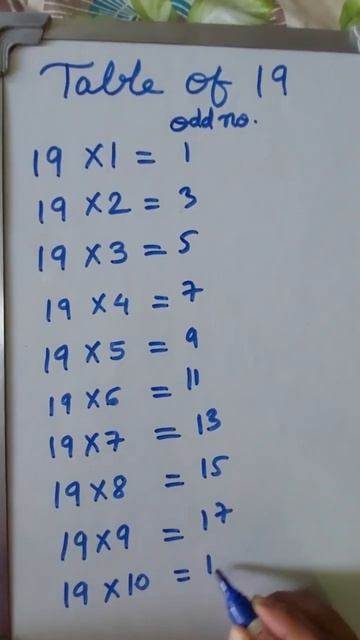 Table of 19
odd no.
19 X1 = 1
19 X2 = 3
19 X3 = 5
19 X4 = 7
19 X5 = 9
19 X6 = 11
19 X7 = 13
19 X8 = 15
19 X9 = 17
19 X10 = 1